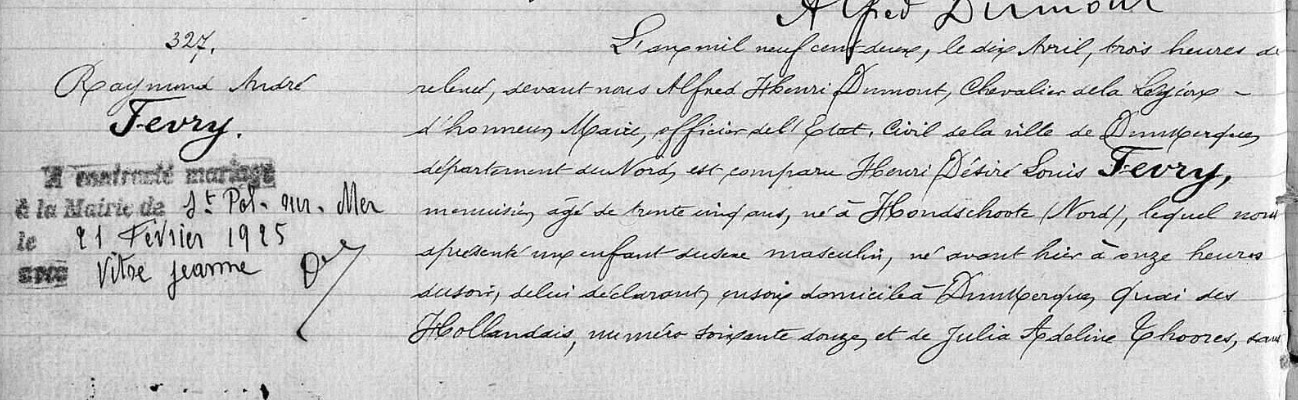 Alfred Dumont
327.
Raymond André
Fevry.
A contracté mariage
à la Mairie de St Pol-sur-Mer
le 21 Février 1925
avec Vitse Jeanne
L'an mil neuf cent deux, le dix Avril, trois heures de
relevé, devant nous Alfred Henri Dumont, Chevalier de la Légion
d'honneur, Maire, officier de l'Etat, Civil de la ville de Dunkerque,
département du Nord, est comparu Henri Désiré Louis Fevry,
menuisier, âgé de trente cinq ans, né à Hondschoote (Nord), lequel nous
a présenté un enfant du sexe masculin, né avant hier à onze heures
du soir, de lui déclarant, en son domicile à Dunkerque, Quai des
Hollandais, numéro soixante douze, et de Julia Adeline Thoores, sans